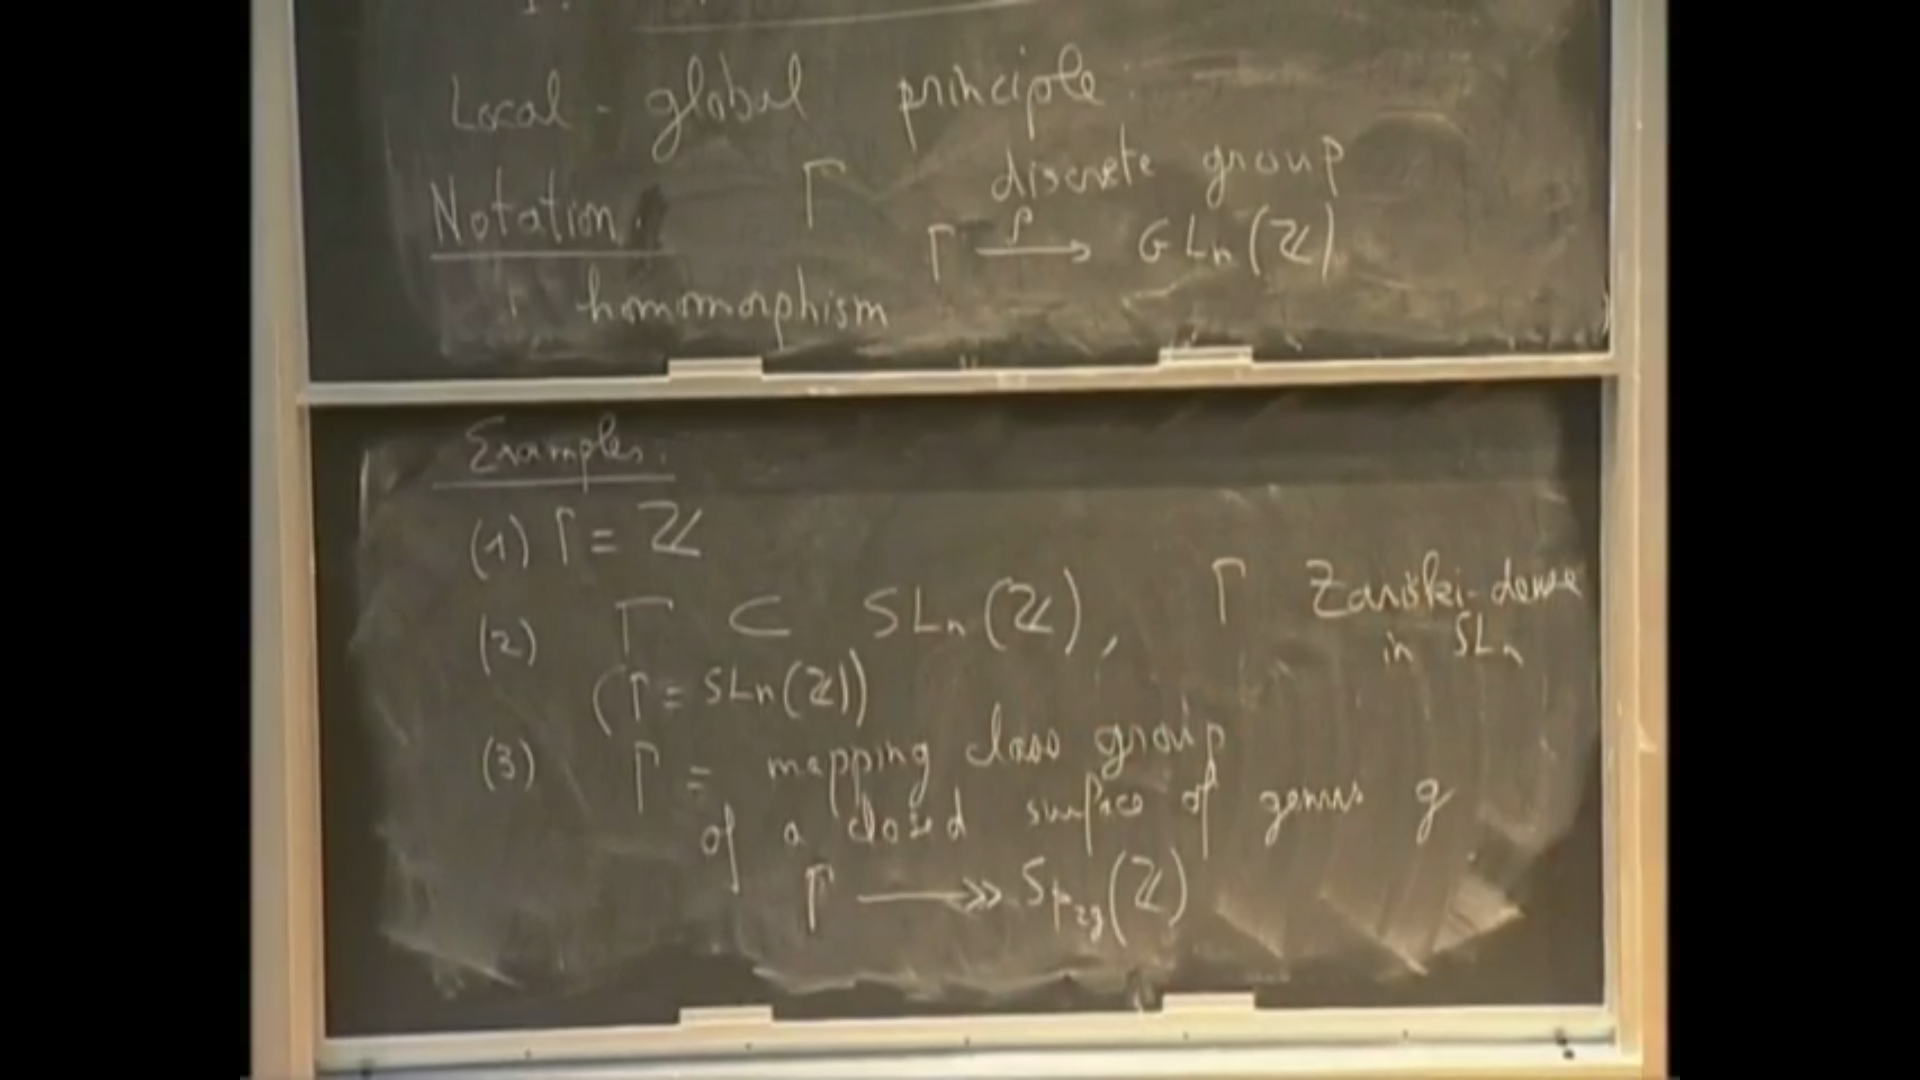 Local - global principle.
Notation. Γ discrete group
Γ —ρ→ GLn(ℤ)
homomorphism
Examples.
(1) Γ = ℤ
(2) Γ ⊂ SLn(ℤ), Γ Zariski-dense
in SLn
(Γ = SLn(ℤ))
(3) Γ = mapping class group
of a closed surface of genus g
Γ ↠ Sp2g(ℤ)